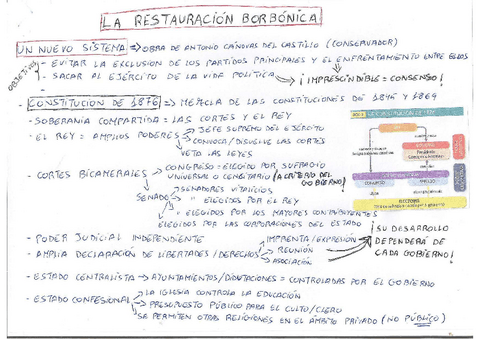 LA RESTAURACIÓN BORBÓNICA
UN NUEVO SISTEMA ⇒ OBRA DE ANTONIO CÁNOVAS DEL CASTILLO (CONSERVADOR)
OBJETIVOS
- EVITAR LA EXCLUSIÓN DE LOS PARTIDOS PRINCIPALES Y EL ENFRENTAMIENTO ENTRE ELLOS
- SACAR AL EJÉRCITO DE LA VIDA POLÍTICA
¡IMPRESCINDIBLE = CONSENSO!
- CONSTITUCIÓN DE 1876 ⇒ MEZCLA DE LAS CONSTITUCIONES DE 1845 Y 1869
- SOBERANÍA COMPARTIDA = LAS CORTES Y EL REY
- EL REY = AMPLIOS PODERES
JEFE SUPREMO DEL EJÉRCITO
CONVOCA/DISUELVE LAS CORTES
VETO LAS LEYES
- CORTES BICAMERALES
CONGRESO = ELEGIDO POR SUFRAGIO
UNIVERSAL O CENSITARIO
¡A CRITERIO DEL GOBIERNO!
SENADO
SENADORES VITALICIOS
" ELEGIDOS POR EL REY
" ELEGIDOS POR LOS MAYORES CONTRIBUYENTES
ELEGIDOS POR LAS CORPORACIONES DEL ESTADO
- PODER JUDICIAL INDEPENDIENTE
- AMPLIA DECLARACIÓN DE LIBERTADES/DERECHOS
IMPRENTA/EXPRESIÓN
REUNIÓN
ASOCIACIÓN
¡SU DESARROLLO
DEPENDERÁ DE
CADA GOBIERNO!
- ESTADO CENTRALISTA → AYUNTAMIENTOS/DIPUTACIONES = CONTROLADAS POR EL GOBIERNO
- ESTADO CONFESIONAL
LA IGLESIA CONTROLA LA EDUCACIÓN
PRESUPUESTO PÚBLICO PARA EL CULTO/CLERO
SE PERMITEN OTRAS RELIGIONES EN EL ÁMBITO PRIVADO (NO PÚBLICO)